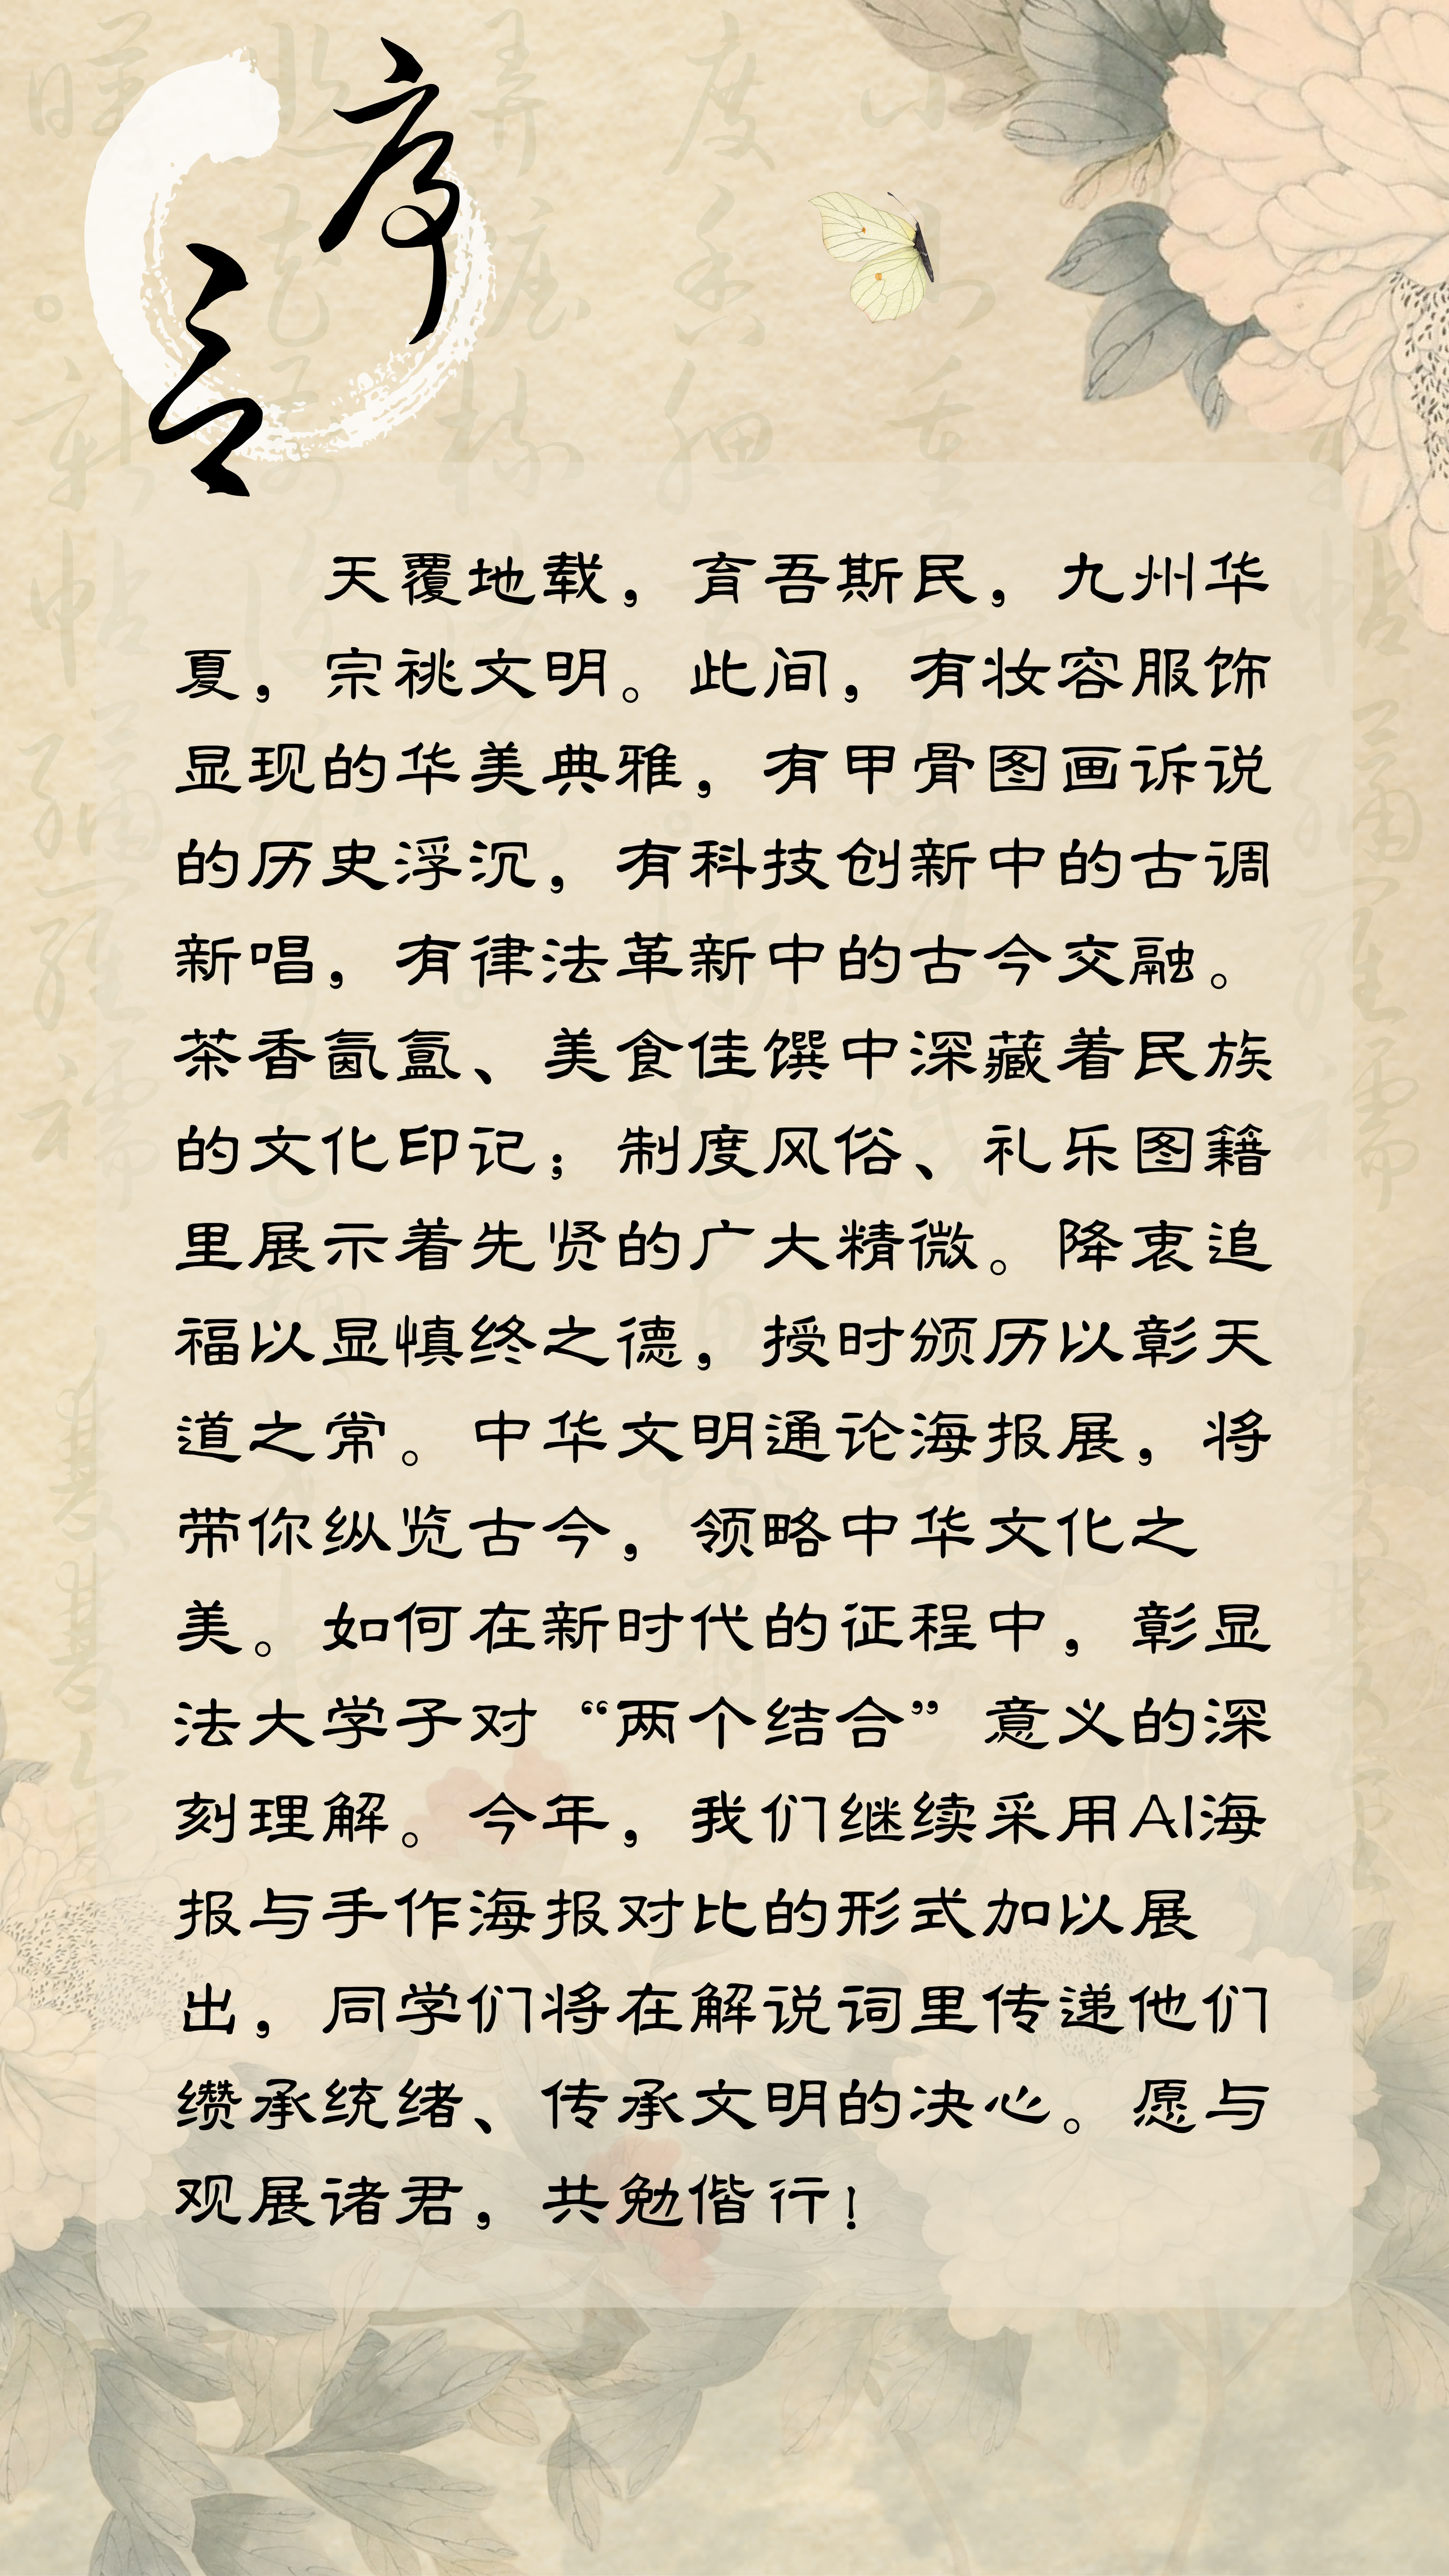 序言
天覆地载，育吾斯民，九州华
夏，宗祧文明。此间，有妆容服饰
显现的华美典雅，有甲骨图画诉说
的历史浮沉，有科技创新中的古调
新唱，有律法革新中的古今交融。
茶香氤氲、美食佳馔中深藏着民族
的文化印记；制度风俗、礼乐图籍
里展示着先贤的广大精微。降衷追
福以显慎终之德，授时颁历以彰天
道之常。中华文明通论海报展，将
带你纵览古今，领略中华文化之
美。如何在新时代的征程中，彰显
法大学子对“两个结合”意义的深
刻理解。今年，我们继续采用AI海
报与手作海报对比的形式加以展
出，同学们将在解说词里传递他们
缵承统绪、传承文明的决心。愿与
观展诸君，共勉偕行！